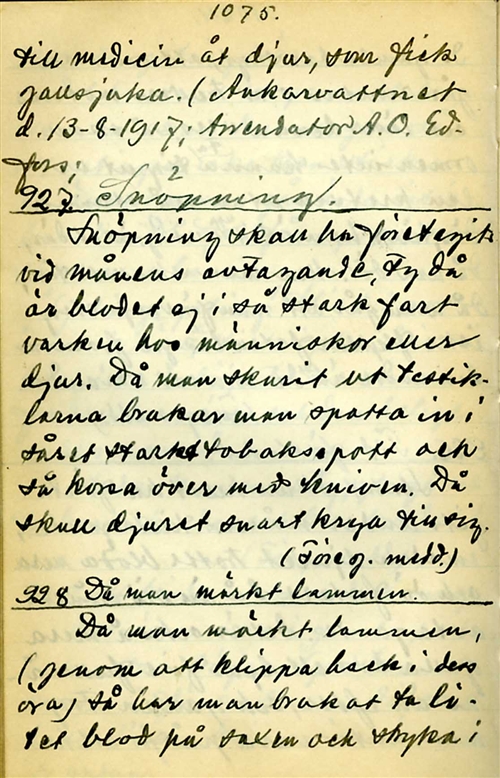 1075.
till medicin åt djur, som fick
gallsjuka. (Ankarvattnet
d. 13-8-1917; Arrendator A. O. Ed-
fors;
927 Snöpning.
Snöpning skall ha företagits
vid månens avtagande, ty då
är blodet ej i så stark fart
varken hos människor eller
djur. Då man skurit ut testik-
larna brukar man spotta in i
såret starkt tobakspott och
så korsa över med kniven. Då
skall djuret snart krya till sig.
(Föreg. medd.)
928 Då man märkt lammen.
Då man märkt lammen,
(genom att klippa hack i dess
öra) så har man brukat ta li-
tet blod på saxen och stryka i